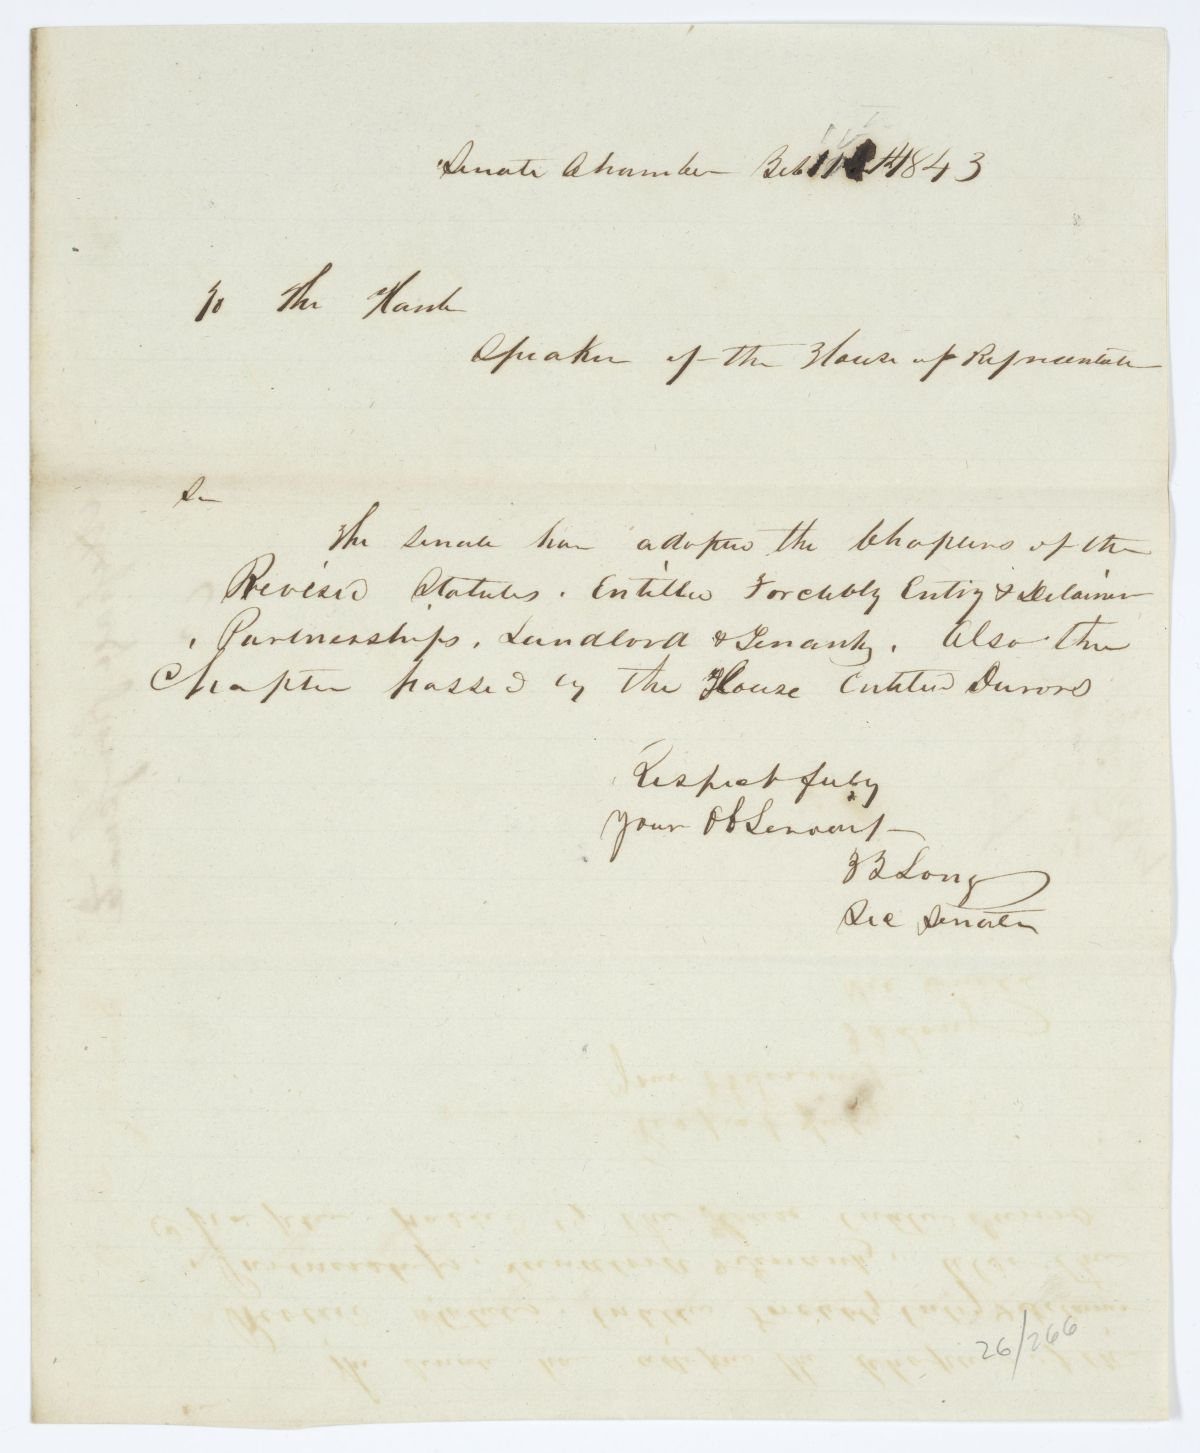 Senate Chamber Feb 11 1843
To the Honble
Speaker of the House of Representatives
Sir
The Senate have adopted the Chapters of the
Revised Statutes. Entitled Forcibly Entry & Detainer
, Partnerships, Landlord & Tenants, Also the
Chapter passed by the House Entitled
Respectfully
your Ob Servant
Long
Sec Senate
26/266